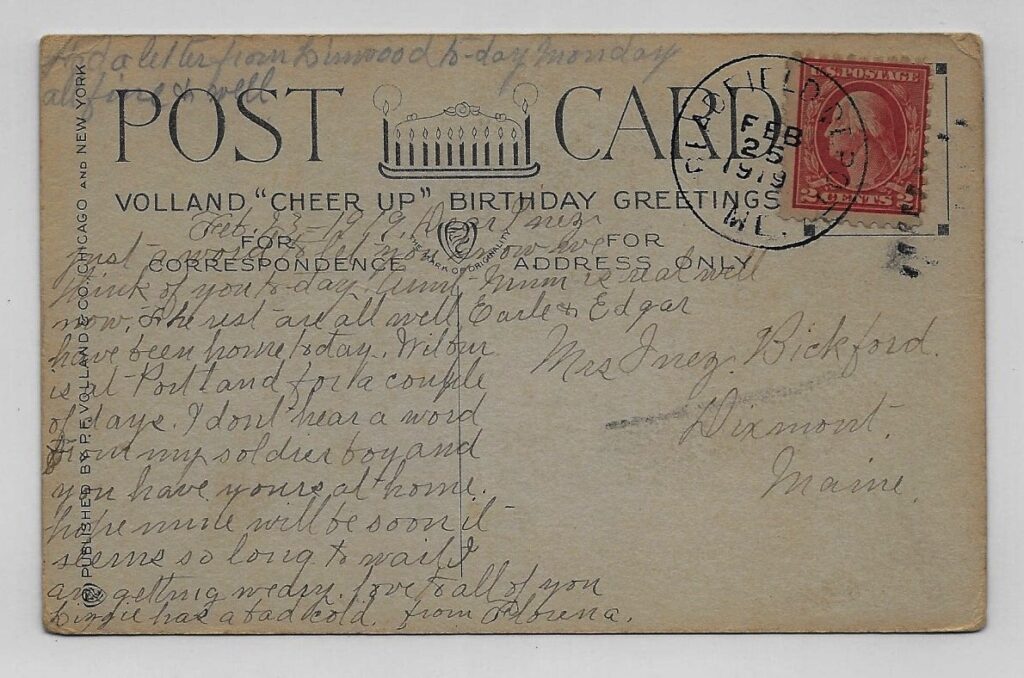 Had a letter from Linwood to-day Monday
all fine & well
POST CARD
VOLLAND "CHEER UP" BIRTHDAY GREETINGS
FOR CORRESPONDENCE
THE MARK OF ORIGINALITY
FOR ADDRESS ONLY
PUBLISHED BY P.F. VOLLAND & CO., CHICAGO AND NEW YORK
FEB
25
1919
ME.
U.S. POSTAGE
2 CENTS 2
Feb. 23-1919. Dear Inez
just a word to let you know we
think of you to-day. Aunt is real well
now. The rest are all well Earle & Edgar
have been home to day. Wilbur
is at Portland for a couple
of days. I dont hear a word
from my soldier boy and
you have yours at home.
hope mine will be soon it
seems so long to wait I
am getting weary. love to all of you
has a bad cold. from Florena.
Mrs Inez Bickford.
Dixmont.
Maine.